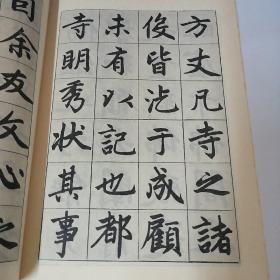 方丈凡寺之諸
俊皆汔于成顧
未有以記也都
寺明秀狀其事
余友文心之